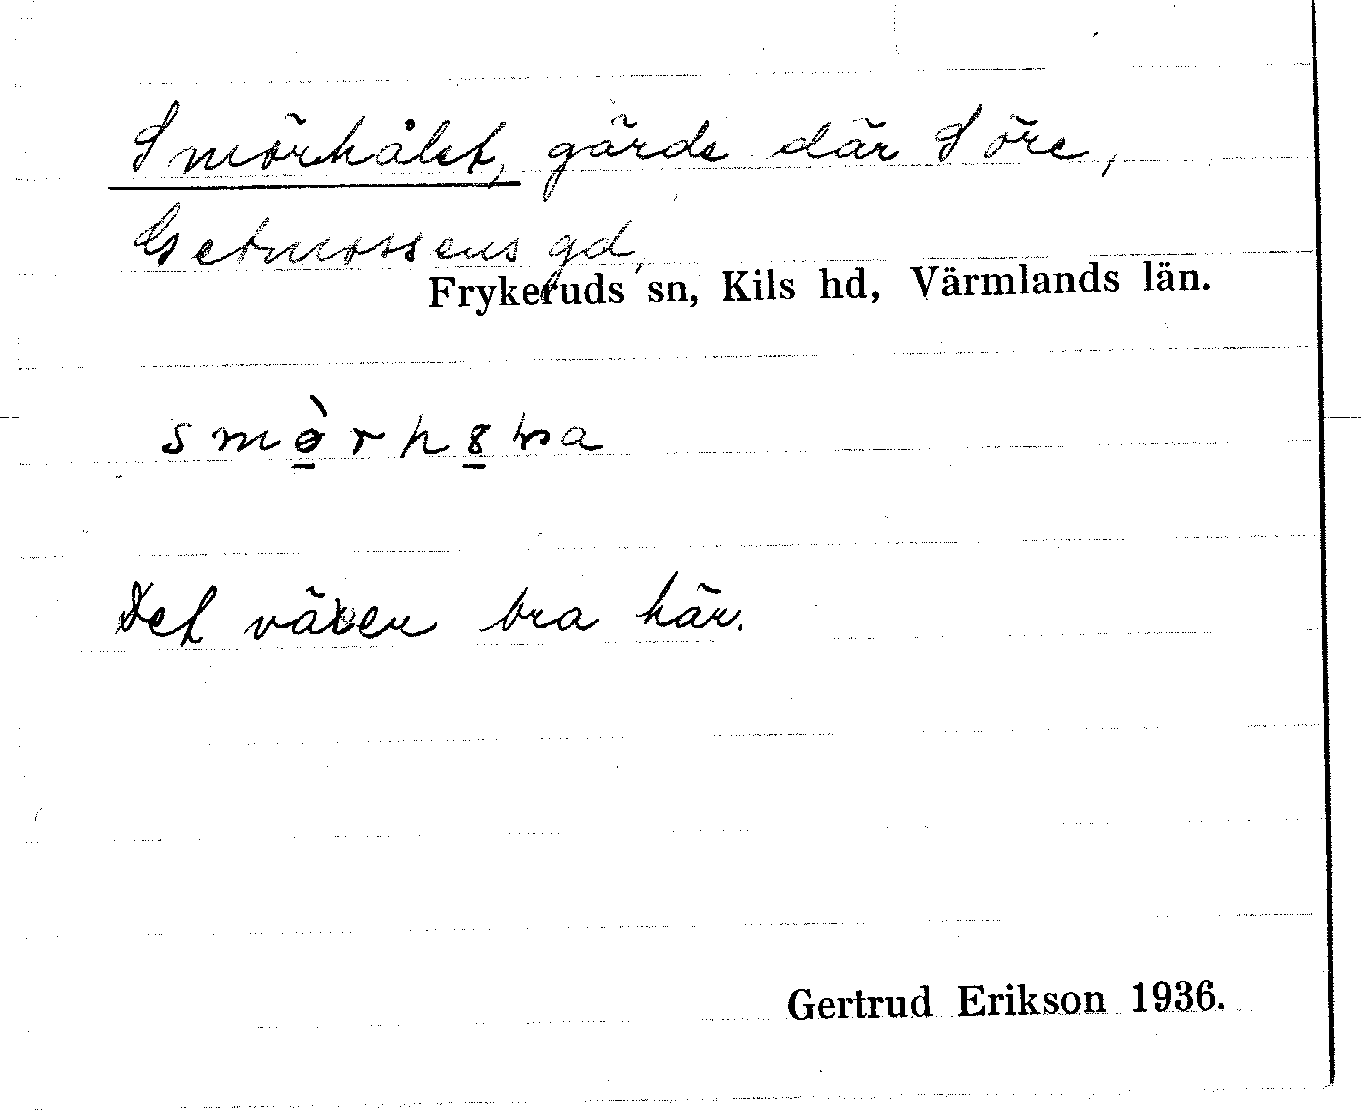 Smörhålet, gärde där Söre,
Getmossens gd,
Frykeruds sn, Kils hd, Värmlands län.
Det växer bra här.
Gertrud Erikson 1936.